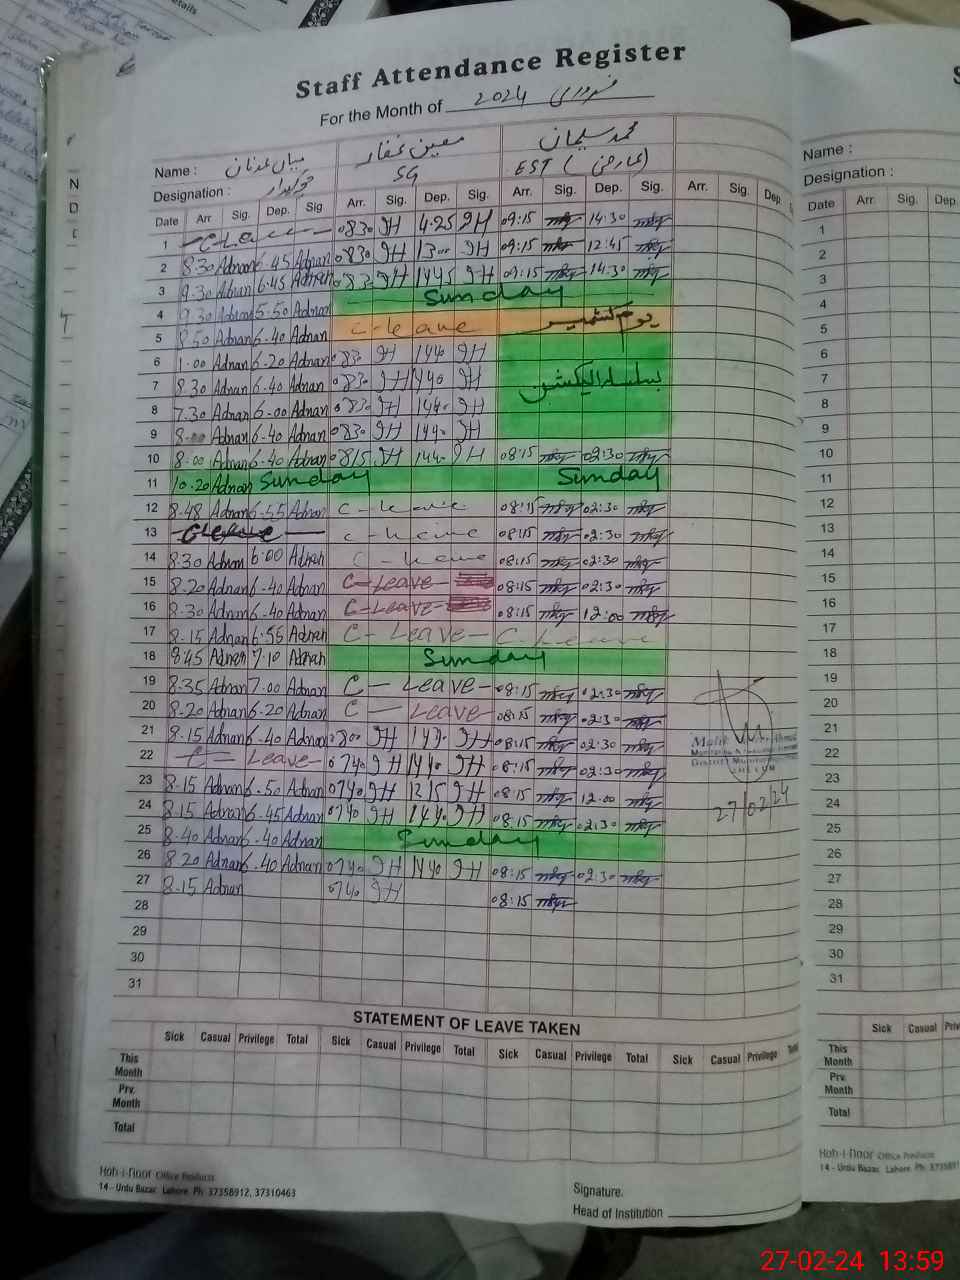 Staff Attendance Register
For the Month of فروری 2024
Name : میاں عدنان معین غفار محمد سلیمان
Designation : چوکیدار SG EST (عارضی)
Date Arr Sig. Dep. Sig Arr. Sig. Dep. Sig. Arr. Sig. Dep. Sig. Arr. Sig. Dep.
1 C-Leave 0830 4.25 09:15 14:30
2 8.30 Adnan 6.45 Adnan 0830 1300 09:15 12:45
3 9.30 Adnan 6.45 Adnan 0830 1445 09:15 14:30
4 9.30 Adnan 5.50 Adnan Sunday
5 8.50 Adnan 6.40 Adnan C-leave یوم کشمیر
6 1.00 Adnan 6.20 Adnan 0830 1440
7 8.30 Adnan 6.40 Adnan 0830 1440 بسلسلہ الیکشن
8 7.30 Adnan 6.00 Adnan 0830 1440
9 8.00 Adnan 6.40 Adnan 0830 1440
10 8.00 Adnan 6.40 Adnan 0815 1440 08:15 02:30
11 10.20 Adnan Sunday Sunday
12 8.48 Adnan 6.55 Adnan C-leave 08:15 02:30
13 C-leave C-leave 08:15 02:30
14 8.30 Adnan 6.00 Adnan C-leave 08:15 02:30
15 8.20 Adnan 6.40 Adnan C-Leave 08:15 02:30
16 8.30 Adnan 6.40 Adnan C-Leave 08:15 12:00
17 8.15 Adnan 6.55 Adnan C-Leave C-Leave
18 8.45 Adnan 7.10 Adnan Sunday
19 8.35 Adnan 7.00 Adnan C-Leave 08:15 02:30
20 8.20 Adnan 6.20 Adnan C-Leave 08:15 02:30
21 8.15 Adnan 6.40 Adnan 0800 1440 08:15 02:30
22 C-Leave 0740 1440 08:15 02:30
23 8.15 Adnan 6.50 Adnan 0740 1215 08:15 12:00
24 8.15 Adnan 6.45 Adnan 0740 1440 08:15 02:30
25 8.40 Adnan 6.40 Adnan Sunday
26 8.20 Adnan 6.40 Adnan 0740 1440 08:15 02:30
27 8.15 Adnan 0740 08:15
28
29
30
31
27/02/24
STATEMENT OF LEAVE TAKEN
Sick Casual Privilege Total Sick Casual Privilege Total Sick Casual Privilege Total Sick Casual Privilege Total
This Month
Prv. Month
Total
Koh-i-Noor Office Products
14 - Urdu Bazar Lahore Ph: 37358912, 37310463
Signature.
Head of Institution
Name :
Designation :
Date Arr. Sig. Dep.
1
2
3
4
5
6
7
8
9
10
11
12
13
14
15
16
17
18
19
20
21
22
23
24
25
26
27
28
29
30
31
Sick Casual
This Month
Prv. Month
Total
Koh-i-Noor Office Products
14 - Urdu Bazar Lahore Ph:
27-02-24 13:59